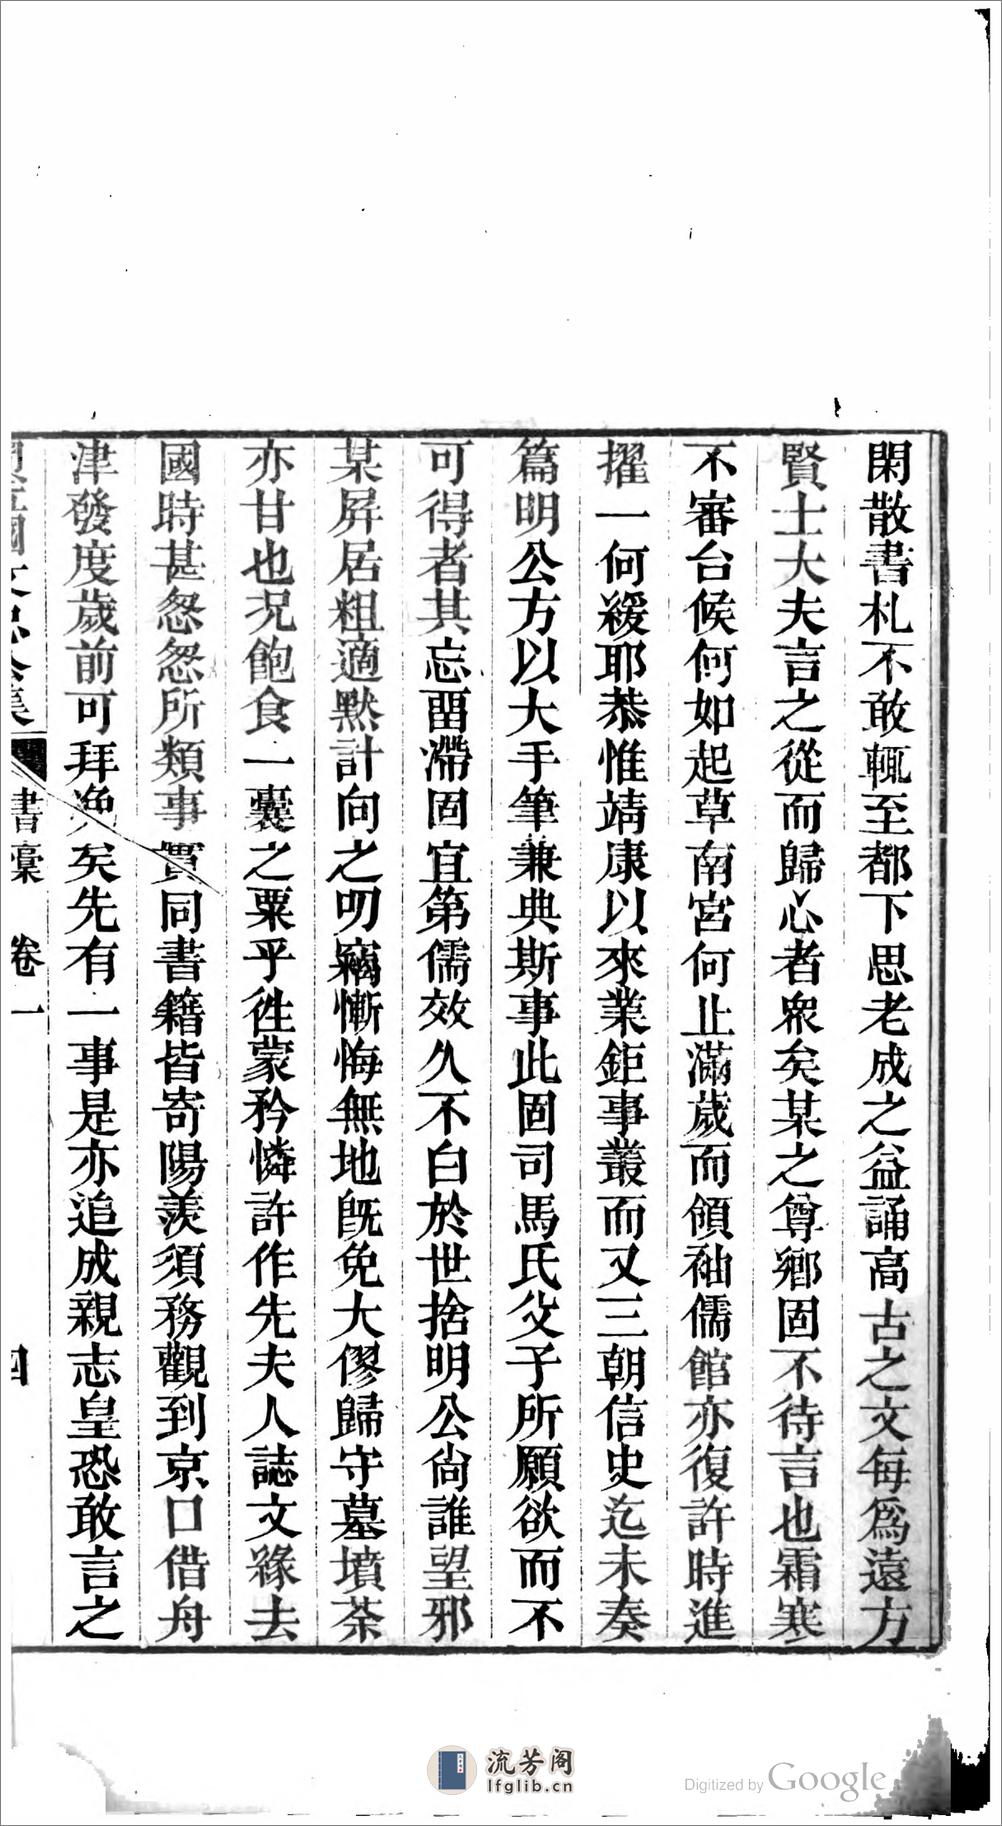 閑散書札不敢輒至都下思老成之益誦高古之文每爲遠方
賢士大夫言之從而歸心者衆矣某之尊鄉固不待言也霜寒
不審台候何如起草南宮何止滿歲而領袖儒館亦復許時進
擢一何緩耶恭惟靖康以來業鉅事叢而又三朝信史迄未奏
篇明公方以大手筆兼典斯事此固司馬氏父子所願欲而不
可得者其忘畱滯固宜第儒效久不白於世捨明公尙誰望邪
某屛居粗適默計向之叨竊慚悔無地旣免大僇歸守墓墳荼
亦甘也况飽食一囊之粟乎徃蒙矜憐許作先夫人誌文緣去
國時甚怱怱所類事實同書籍皆寄陽羨須務觀到京口借舟
津發度歲前可拜㝹矣先有一事是亦追成親志皇恐敢言之
文忠公集 書稾 卷一 四
流芳阁
lfglib.cn
Digitized by Google